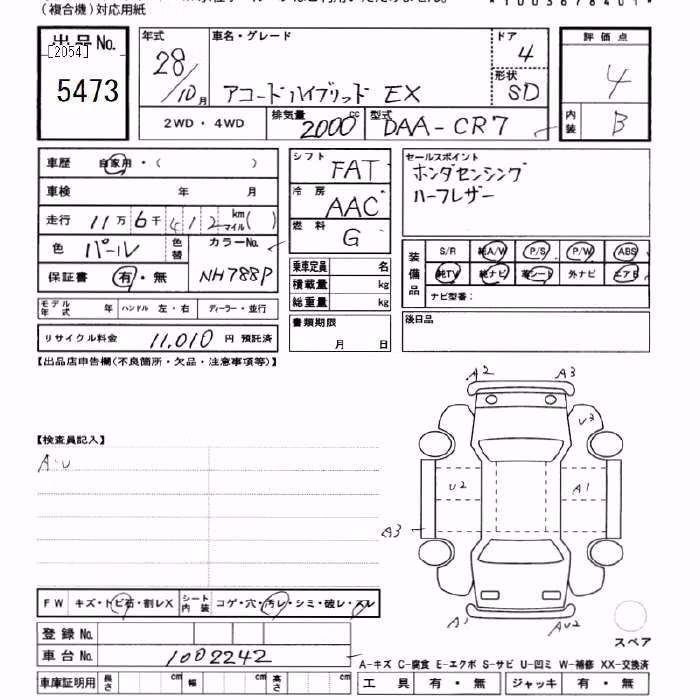 (複合機)対応用紙
出品No.
[2054]
5473
年式
28/10月
車名・グレード
アコードハイブリッド EX
ドア
4
形状
SD
評価点
4
内装
B
2WD・4WD
排気量
2000cc
型式
DAA-CR7
車歴 自家用・( )
車検 年 月
走行 11万6千412 km マイル( )
色 パール 色替 カラーNo.
NH788P
保証書 有・無
モデル年式 年 ハンドル 左・右 ディーラー・並行
リサイクル料金 11,010 円 預託済
シフト FAT
冷房 AAC
燃料 G
乗車定員 名
積載量 kg
総重量 kg
書類期限
月 日
セールスポイント
ホンダセンシング
ハーフレザー
装備品
S/R 純A/W P/S P/W ABS
純TV 純ナビ 革シート 外ナビ エアB
ナビ型番:
後日品
【出品店申告欄(不良箇所・欠品・注意事項等)】
【検査員記入】
A・U
A2 A3
U3
U2 A1
A3
A1 AU2
スペア
FW キズ・トビ石・割レX シート内装 コゲ・穴・汚レ・シミ・破レ・スレ
登録No.
車台No. 1002242
A-キズ C-腐食 E-エクボ S-サビ U-凹ミ W-補修 XX-交換済
車庫証明用 長さ cm 幅 cm 高さ cm 工具 有・無 ジャッキ 有・無